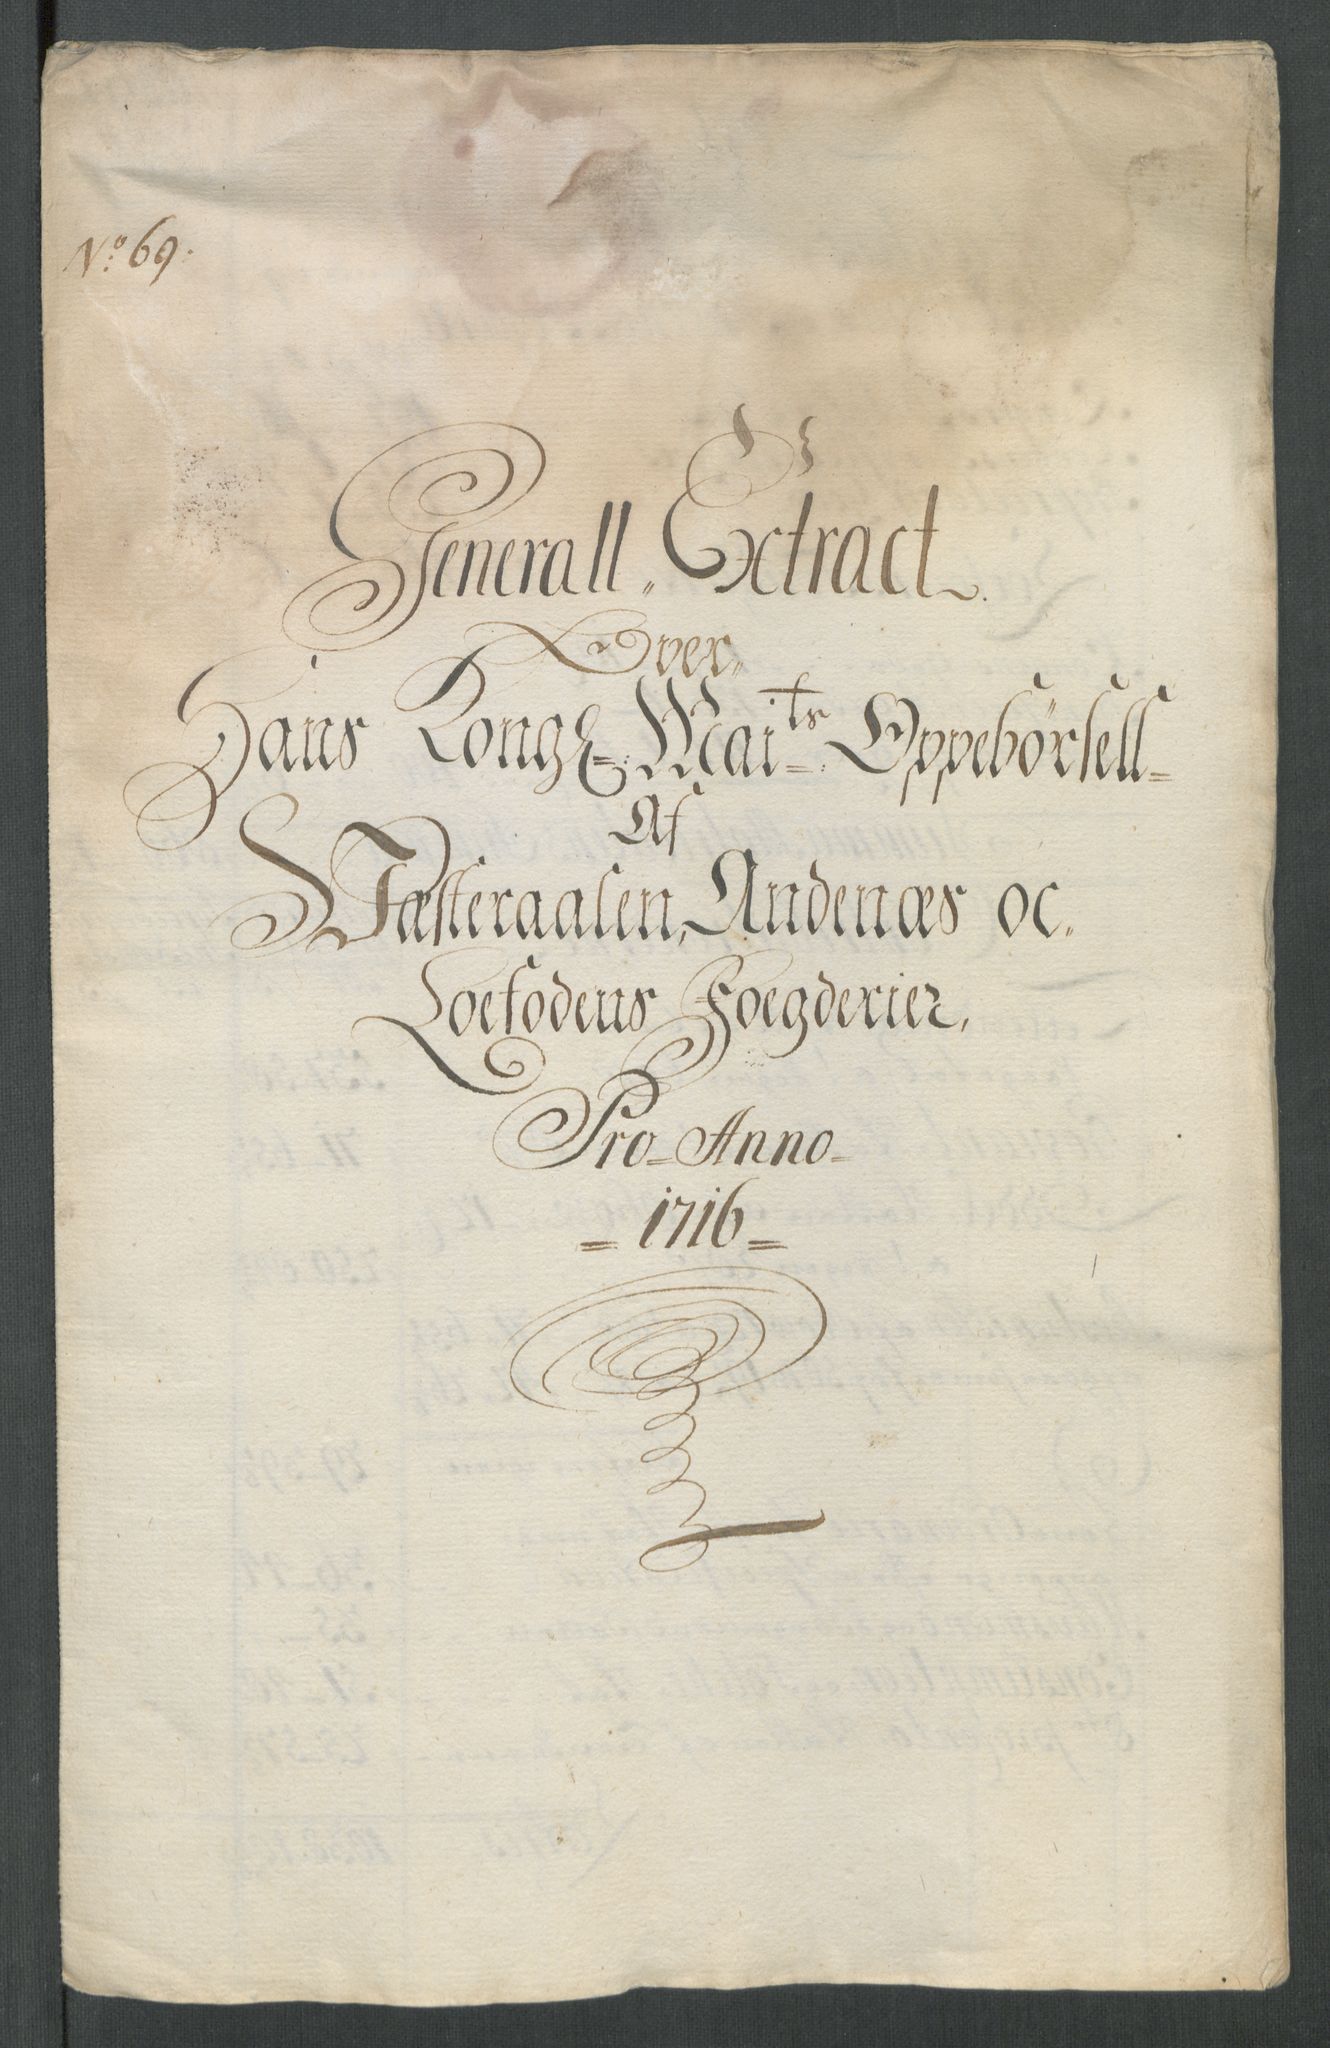 No 69.
Generall Extract
Over
Hans Kongl: Maits: Oppebörsell
Af
Wæsteraalen, Andenæs oc
Loefodens Foegderier,
Pro Anno
1716